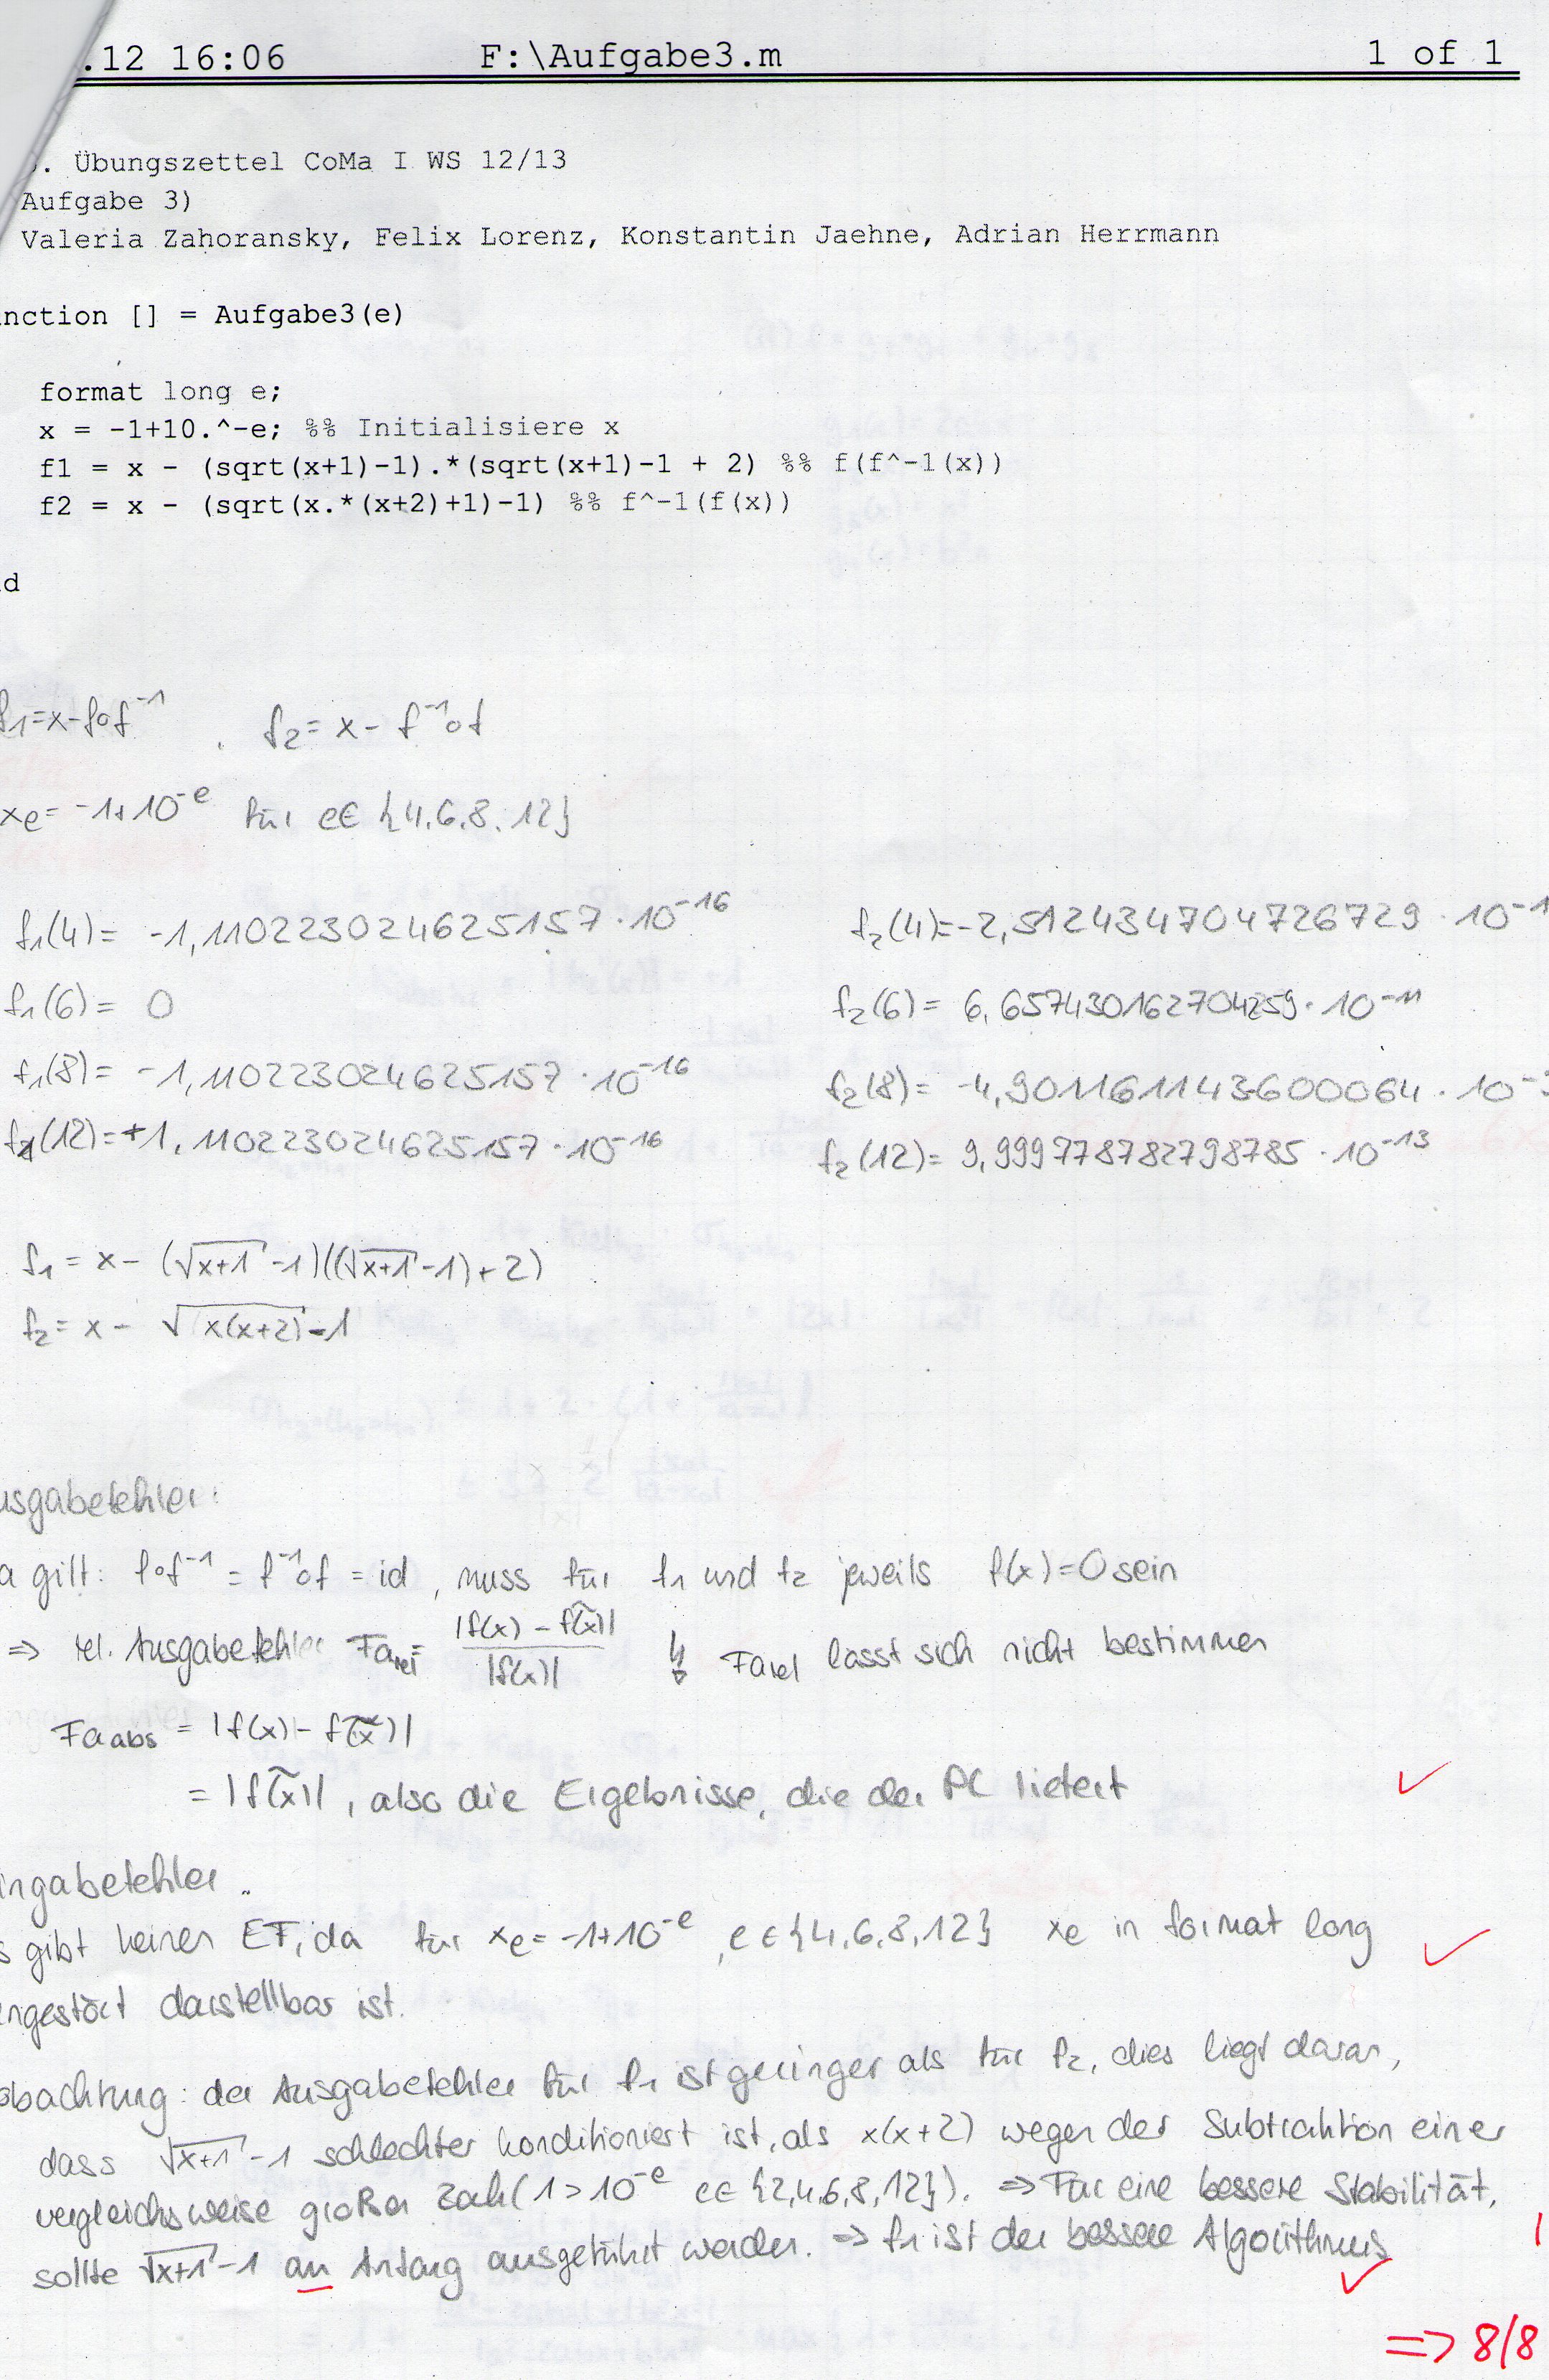 .12 16:06 F:\Aufgabe3.m 1 of 1
. Übungszettel CoMa I WS 12/13
Aufgabe 3)
Valeria Zahoransky, Felix Lorenz, Konstantin Jaehne, Adrian Herrmann
nction [] = Aufgabe3(e)
format long e;
x = -1+10.^-e; %% Initialisiere x
f1 = x - (sqrt(x+1)-1).*(sqrt(x+1)-1 + 2) %% f(f^-1(x))
f2 = x - (sqrt(x.*(x+2)+1)-1) %% f^-1(f(x))
d
f₁=x-f∘f⁻¹ , f₂= x - f⁻¹∘f
xe= -1+10⁻ᵉ für e∈ {4,6,8,12}
f₁(4)= -1,110223024625157·10⁻¹⁶ f₂(4)=-2,512434704726729·10⁻¹
f₁(6)= 0 f₂(6)= 6,657430162704259·10⁻¹¹
f₁(8)= -1,110223024625157·10⁻¹⁶ f₂(8)= -4,901161143600064·10⁻
f₁(12)=+1,110223024625157·10⁻¹⁶ f₂(12)= 9,999778782798785·10⁻¹³
f₁ = x - (√x+1 -1)((√x+1 -1)+2)
f₂= x - √x(x+2) -1
usgabefehler:
a gilt: f∘f⁻¹ = f⁻¹∘f = id, muss für f₁ und f₂ jeweils f(x)=0 sein
=> rel. Ausgabefehler Fa_rel= |f(x) - f(x̃)| / |f(x)| ↯ Fa_rel lässt sich nicht bestimmen
Fa_abs = |f(x) - f(x̃)|
= |f(x̃)|, also die Ergebnisse, die der PC liefert ✓
ingabefehler:
s gibt keinen EF, da für xe= -1+10⁻ᵉ, e∈{4,6,8,12} xe in format long ✓
ngestört darstellbar ist.
obachtung: der Ausgabefehler für f₁ ist geringer als für f₂, dies liegt daran,
dass √x+1 -1 schlechter konditioniert ist, als x(x+2) wegen der Subtraktion einer
vergleichsweise großen Zahl (1>10⁻ᵉ e∈{2,4,6,8,12}). => Für eine bessere Stabilität,
sollte √x+1 -1 an Anfang ausgeführt werden. => f₁ ist der bessere Algorithmus ✓
=> 8/8